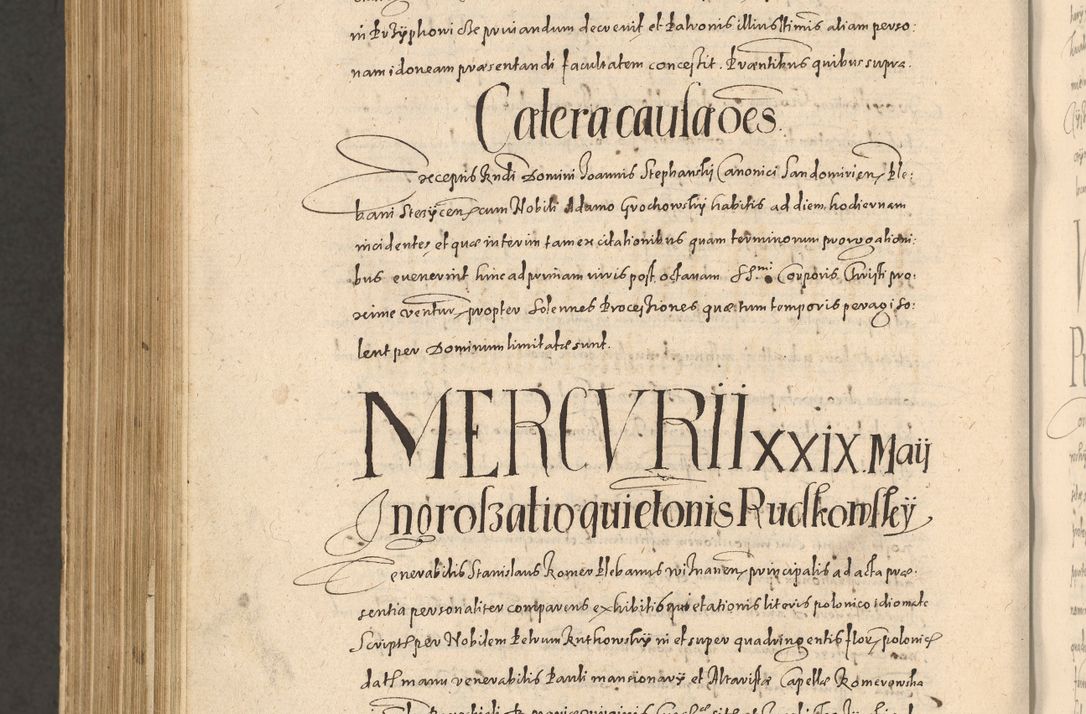 in Przÿphowicse privandum decrevit et Patronis illustrissimis aliam perso:
nam idoneam præsentandi facultatem concessit. Præsentibus quibus supra.
Cætera causa oēs.
receptis Rndi Domini Joannis Stephanskÿ Canonici Sandomirien, Ple:
bani Stezÿcen, cum Nobili Adamo Grochowskÿ habitis ad diem hodiernam
incidentes et quæ interim tam ex citationibus quam terminorum prorogationi:
bus evenerint hinc ad primam iuris post octavam SSmi Corporis Christi pro:
xime ventur, propter solennes Processiones quæ tum temporis peragi so:
lent per Dominum limitatæ sunt.
MERCVRII XXIX. Maij
Ingrossatio quietonis Rudkowskÿ
Venerabilis Stanislaus Romer Plebanus principalis ad acta præ:
sentia personaliter comparens exhibitis quietationis literis polonico idiomate
Script per Nobilem Petrum Rutkowskÿ in et super quadringentis flor, polonic
dat manu venerabilis Pauli mansionarÿ et Altaristæ Capellæ Romerowska